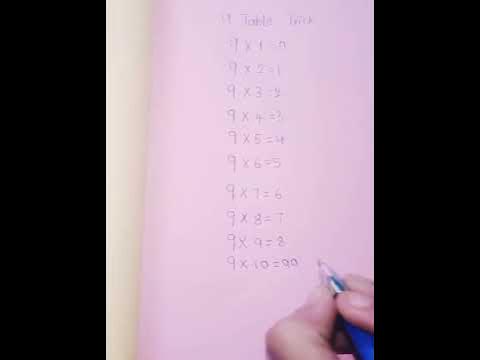 9 Table Trick
9 × 1 = 0
9 × 2 = 1
9 × 3 = 2
9 × 4 = 3
9 × 5 = 4
9 × 6 = 5
9 × 7 = 6
9 × 8 = 7
9 × 9 = 8
9 × 10 = 90